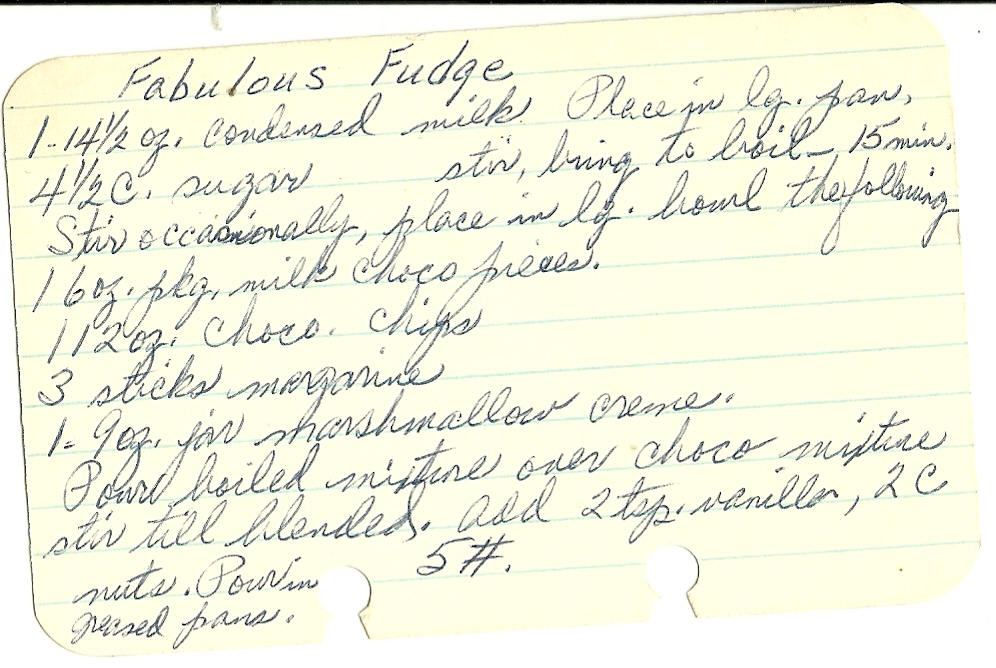 Fabulous Fudge
1-14 1/2 oz. condensed milk. Place in lg. pan,
4 1/2 C. sugar stir, bring to boil - 15 min.
Stir occasionally, place in lg. bowl the following
1 6oz. pkg. milk choco pieces.
1 12oz. choco. chips
3 sticks margarine
1- 9oz. jar marshmallow creme.
Pour boiled mixture over choco mixture
stir till blended. Add 2 tsp. vanilla, 2 C
nuts. Pour in 5#.
greased pans.